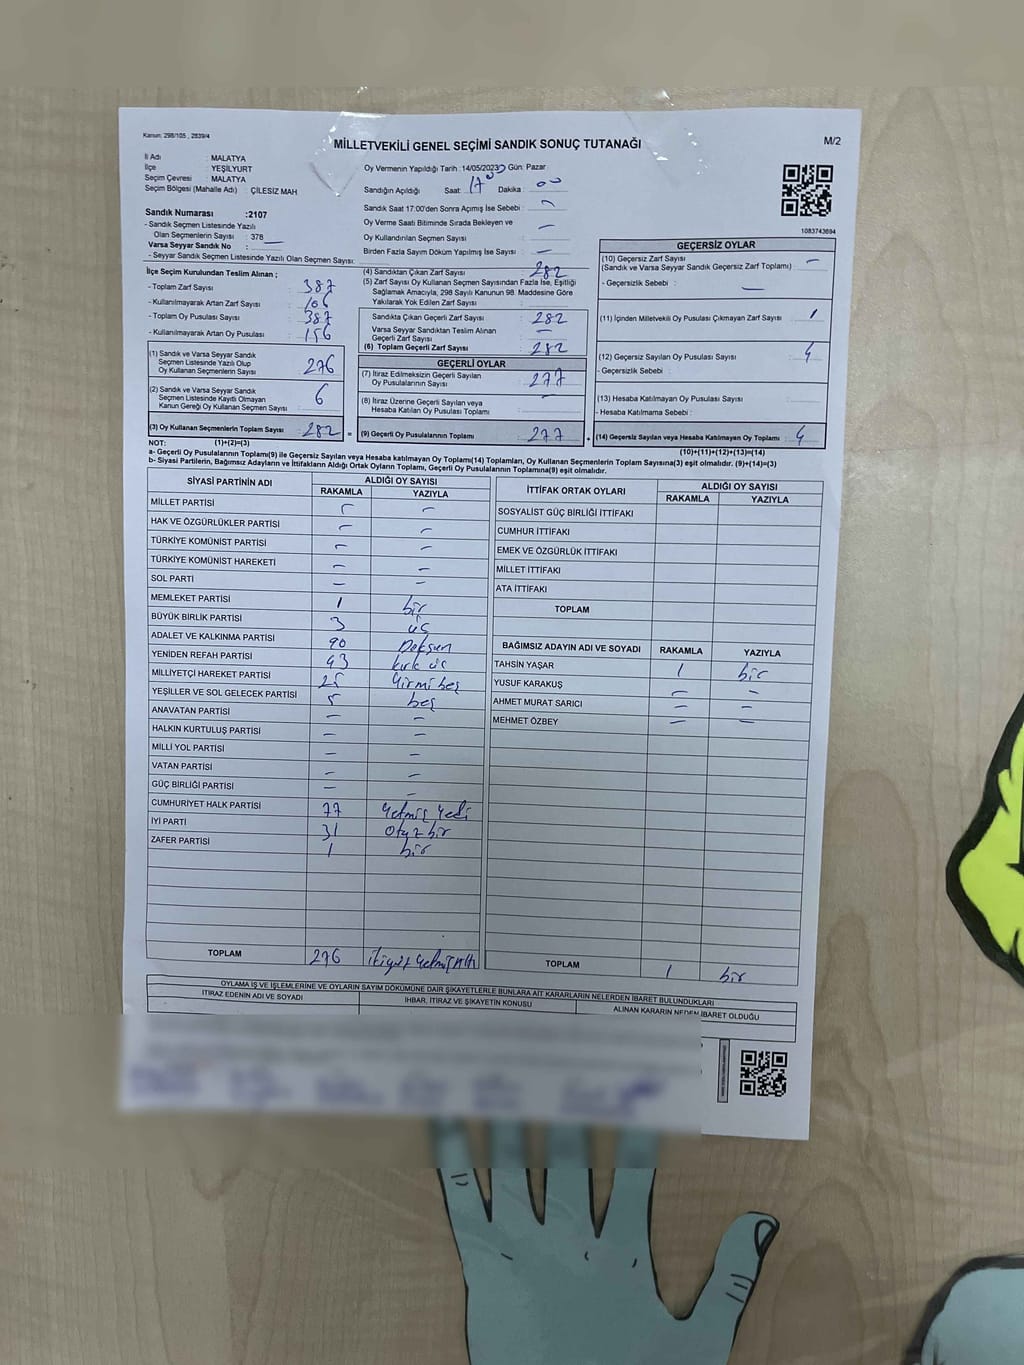 Kanun: 298/105 , 2839/4
MİLLETVEKİLİ GENEL SEÇİMİ SANDIK SONUÇ TUTANAĞI
M/2
İl Adı : MALATYA
İlçe : YEŞİLYURT
Seçim Çevresi : MALATYA
Seçim Bölgesi (Mahalle Adı) : ÇİLESİZ MAH
Oy Vermenin Yapıldığı Tarih :14/05/2023 Gün: Pazar
Sandığın Açıldığı Saat: 17 Dakika : 00
Sandık Saat 17:00'den Sonra Açımış İse Sebebi : -
Oy Verme Saati Bitiminde Sırada Bekleyen ve
Oy Kullandırılan Seçmen Sayısı : -
Birden Fazla Sayım Döküm Yapılmış İse Sayısı : -
1083743694
Sandık Numarası :2107
- Sandık Seçmen Listesinde Yazılı
Olan Seçmenlerin Sayısı : 378
Varsa Seyyar Sandık No :
- Seyyar Sandık Seçmen Listesinde Yazılı Olan Seçmen Sayısı:
İlçe Seçim Kurulundan Teslim Alınan ;
- Toplam Zarf Sayısı : 387
- Kullanılmayarak Artan Zarf Sayısı : 106
- Toplam Oy Pusulası Sayısı : 387
- Kullanılmayarak Artan Oy Pusulası : 156
(1) Sandık ve Varsa Seyyar Sandık
Seçmen Listesinde Yazılı Olup
Oy Kullanan Seçmenlerin Sayısı : 276
(2) Sandık ve Varsa Seyyar Sandık
Seçmen Listesinde Kayıtlı Olmayan
Kanun Gereği Oy Kullanan Seçmen Sayısı : 6
(3) Oy Kullanan Seçmenlerin Toplam Sayısı : 282
(4) Sandıktan Çıkan Zarf Sayısı : 282
(5) Zarf Sayısı Oy Kullanan Seçmen Sayısından Fazla İse, Eşitliği
Sağlamak Amacıyla, 298 Sayılı Kanunun 98. Maddesine Göre
Yakılarak Yok Edilen Zarf Sayısı :
Sandıkta Çıkan Geçerli Zarf Sayısı : 282
Varsa Seyyar Sandıktan Teslim Alınan
Geçerli Zarf Sayısı : -
(6) Toplam Geçerli Zarf Sayısı : 282
GEÇERLİ OYLAR
(7) İtiraz Edilmeksizin Geçerli Sayılan
Oy Pusulalarının Sayısı : 277
(8) İtiraz Üzerine Geçerli Sayılan veya
Hesaba Katılan Oy Pusulası Toplamı : -
= (9) Geçerli Oy Pusulalarının Toplamı : 277
GEÇERSİZ OYLAR
(10) Geçersiz Zarf Sayısı
(Sandık ve Varsa Seyyar Sandık Geçersiz Zarf Toplamı) : -
- Geçersizlik Sebebi : -
(11) İçinden Milletvekili Oy Pusulası Çıkmayan Zarf Sayısı : 1
(12) Geçersiz Sayılan Oy Pusulası Sayısı : 4
- Geçersizlik Sebebi :
(13) Hesaba Katılmayan Oy Pusulası Sayısı :
- Hesaba Katılmama Sebebi :
+ (14) Geçersiz Sayılan veya Hesaba Katılmayan Oy Toplamı : 4
NOT: (1)+(2)=(3)
(10)+(11)+(12)+(13)=(14)
a- Geçerli Oy Pusulaları Toplamı(9) ile Geçersiz Sayılan veya Hesaba Katılmayan Oy Toplamı(14) Toplamları, Oy Kullanan Seçmenlerin Toplam Sayısına(3) eşit olmalıdır. (9)+(14)=(3)
b- Siyasi Partilerin, Bağımsız Adayların ve İttifakların Aldığı Ortak Oyların Toplamı, Geçerli Oy Pusulalarının Toplamına(9) eşit olmalıdır.
SİYASİ PARTİNİN ADI ALDIĞI OY SAYISI
RAKAMLA YAZIYLA
MİLLET PARTİSİ - -
HAK VE ÖZGÜRLÜKLER PARTİSİ - -
TÜRKİYE KOMÜNİST PARTİSİ - -
TÜRKİYE KOMÜNİST HAREKETİ - -
SOL PARTİ - -
MEMLEKET PARTİSİ 1 bir
BÜYÜK BİRLİK PARTİSİ 3 üç
ADALET VE KALKINMA PARTİSİ 90 Doksan
YENİDEN REFAH PARTİSİ 43 kırk üç
MİLLİYETÇİ HAREKET PARTİSİ 25 Yirmi beş
YEŞİLLER VE SOL GELECEK PARTİSİ 5 beş
ANAVATAN PARTİSİ - -
HALKIN KURTULUŞ PARTİSİ - -
MİLLİ YOL PARTİSİ - -
VATAN PARTİSİ - -
GÜÇ BİRLİĞİ PARTİSİ - -
CUMHURİYET HALK PARTİSİ 77 Yetmiş Yedi
İYİ PARTİ 31 Otuz bir
ZAFER PARTİSİ 1 bir
TOPLAM 276 ikiyüz Yetmiş Altı
İTTİFAK ORTAK OYLARI ALDIĞI OY SAYISI
RAKAMLA YAZIYLA
SOSYALİST GÜÇ BİRLİĞİ İTTİFAKI
CUMHUR İTTİFAKI
EMEK VE ÖZGÜRLÜK İTTİFAKI
MİLLET İTTİFAKI
ATA İTTİFAKI
TOPLAM
BAĞIMSIZ ADAYIN ADI VE SOYADI RAKAMLA YAZIYLA
TAHSİN YAŞAR 1 bir
YUSUF KARAKUŞ - -
AHMET MURAT SARICI - -
MEHMET ÖZBEY - -
TOPLAM 1 bir
OYLAMA İŞ VE İŞLEMLERİNE VE OYLARIN SAYIM DÖKÜMÜNE DAİR ŞİKAYETLERLE BUNLARA AİT KARARLARIN NELERDEN İBARET BULUNDUKLARI
İTİRAZ EDENİN ADI VE SOYADI İHBAR, İTİRAZ VE ŞİKAYETİN KONUSU ALINAN KARARIN NEDEN İBARET OLDUĞU